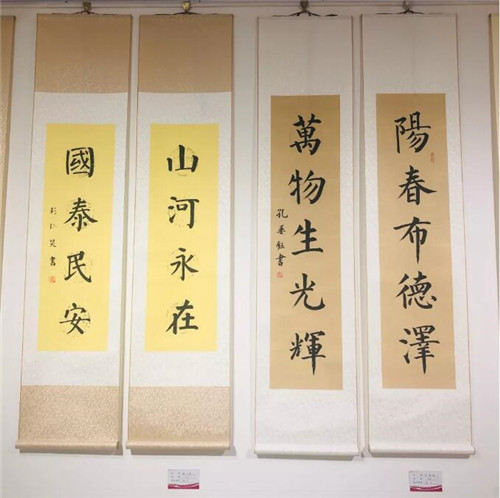 陽春布德澤
萬物生光輝
孔春鈺書
山河永在
國泰民安